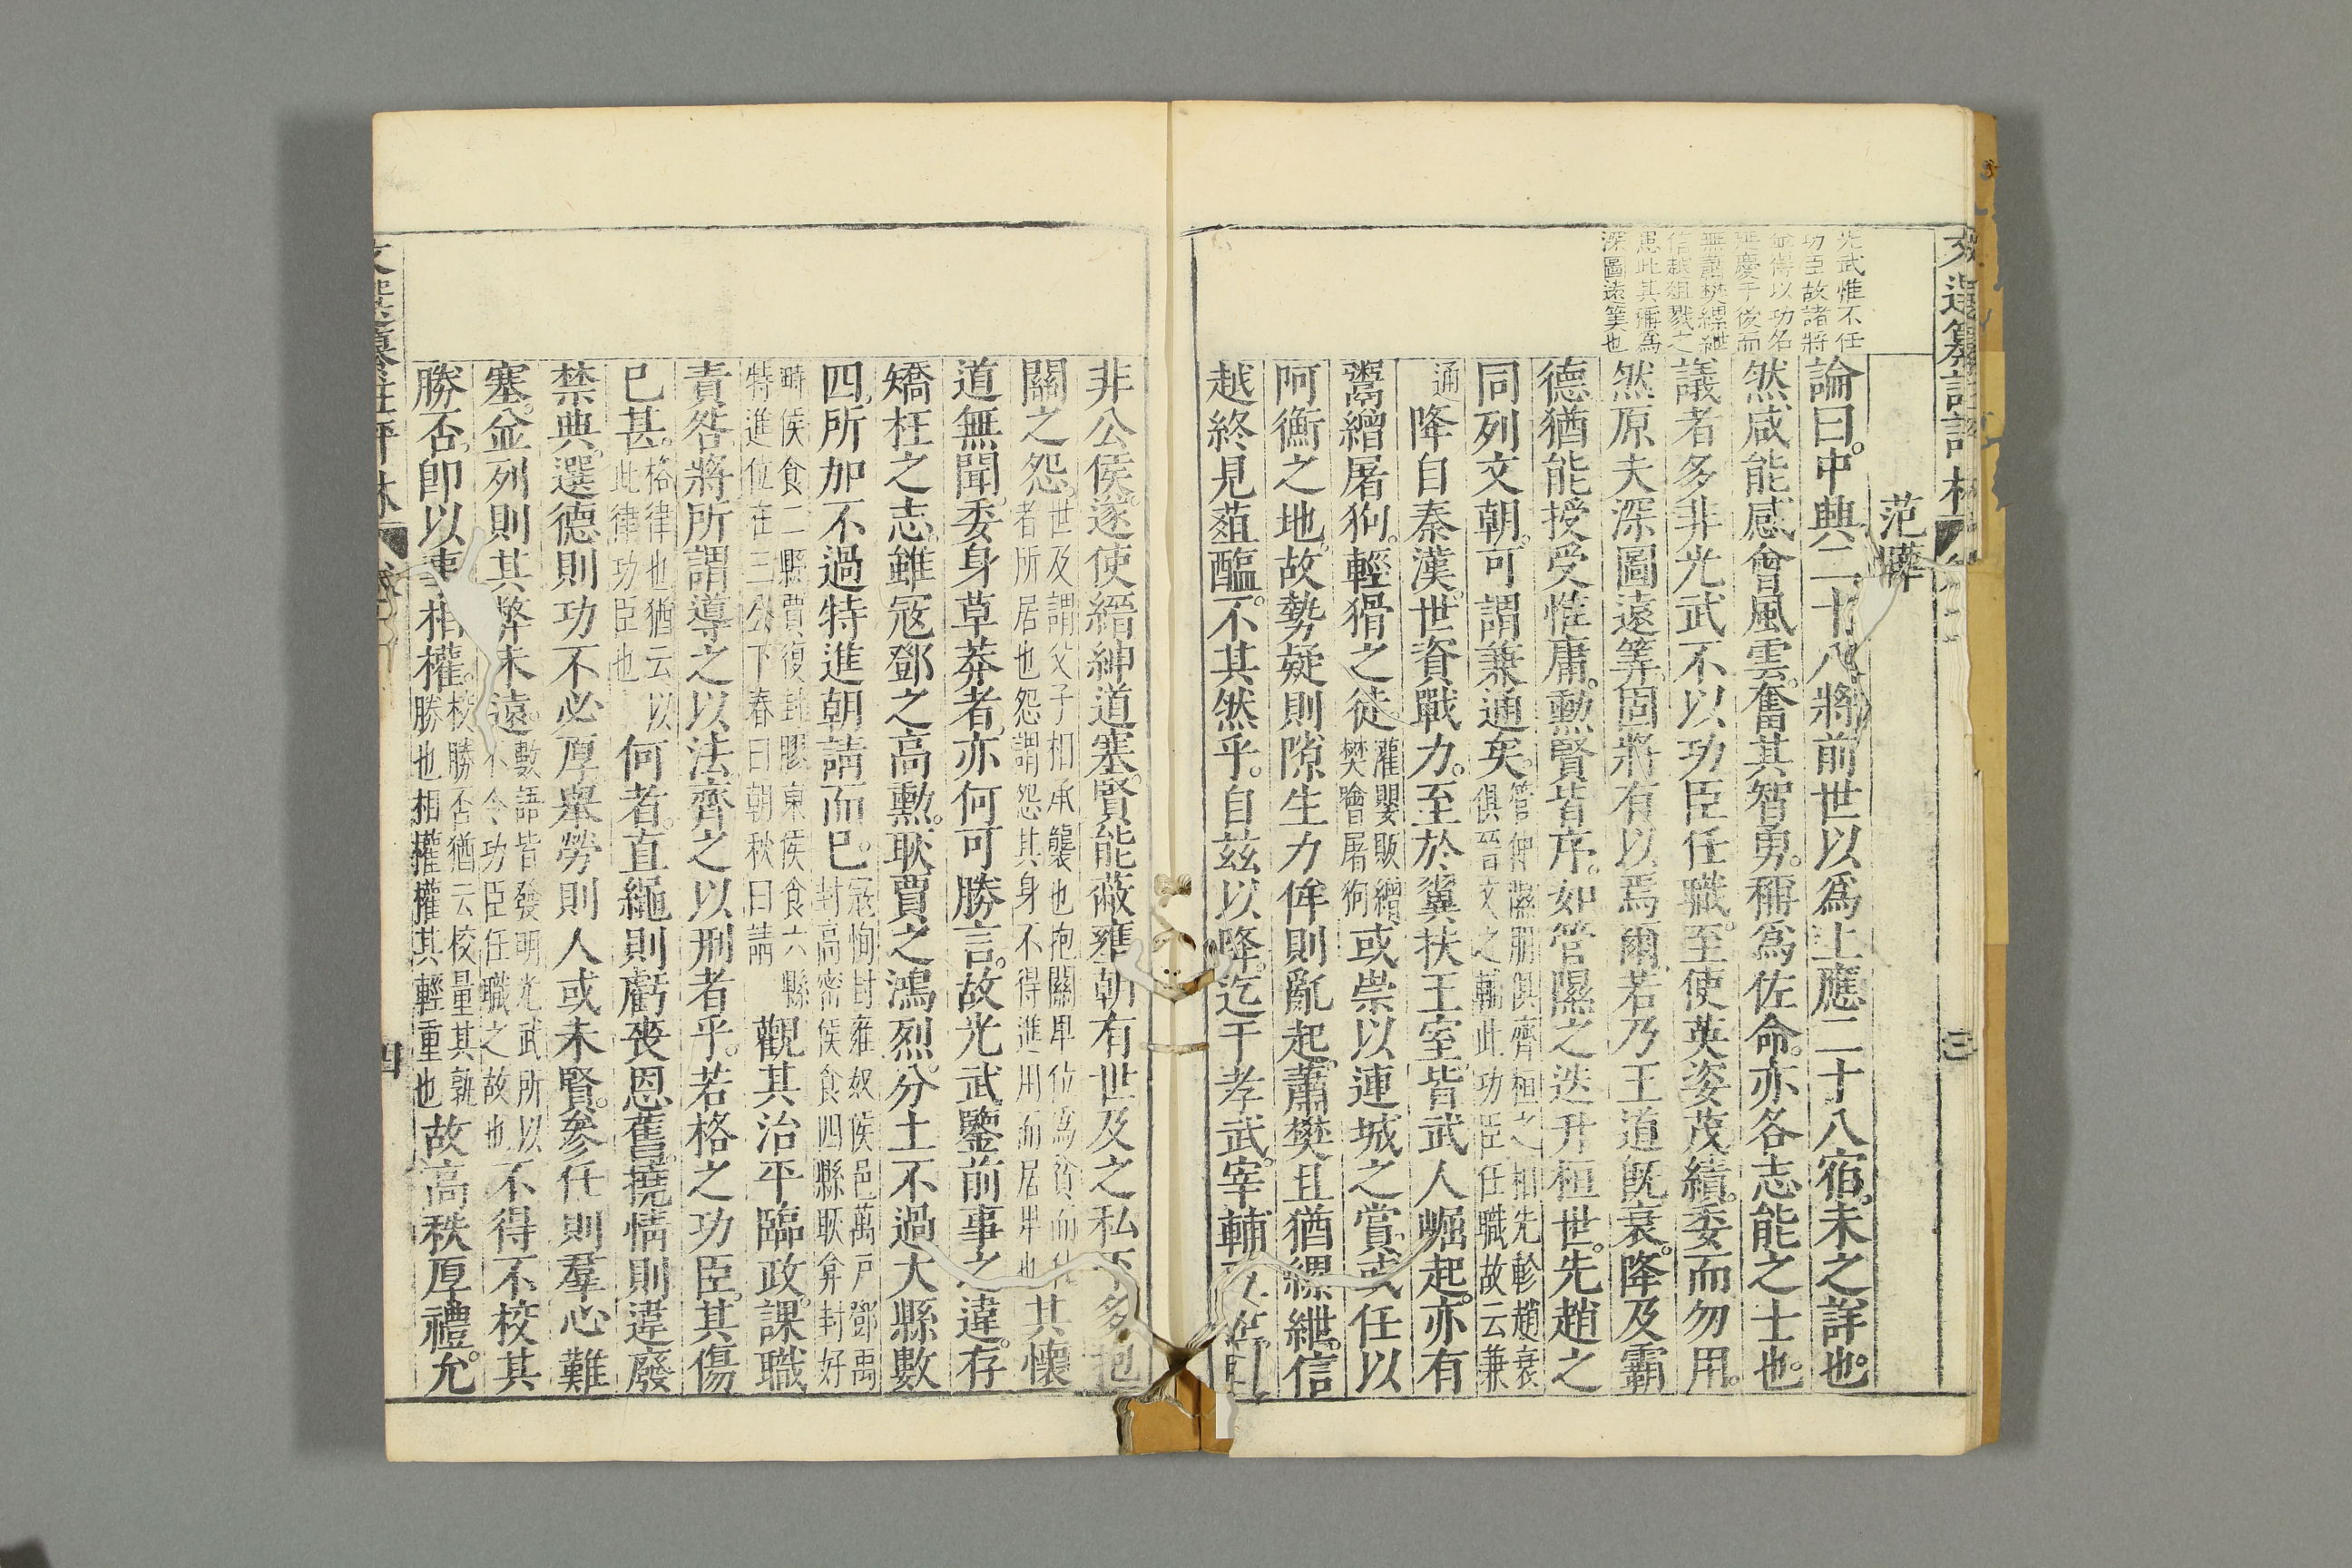 范曄
光武惟不任
功臣故諸將
無蕭樊縲紲
信越葅戮之
患此其所為
深圖遠筭也
論曰。中興二十八將前世以爲上應二十八宿。未之詳也。
然咸能感會風雲。奮其智勇。稱爲佐命。亦各志能之士也。
議者多非光武不以功臣任職。至使英姿茂績。委而勿用。
然原夫深圖遠筭。固將有以焉爾。若乃王道旣衰。降及霸
德猶能授受惟庸。勳賢皆序。如管隰之迭升桓世。先趙之
同列文朝。可謂兼通矣。管仲隰朋俱齊桓之相先軫趙衰
俱晉文之輔此功臣任職故云兼
通降自秦漢。世資戰力。至於翼扶王室。皆武人崛起。亦有
鬻繒屠狗。輕猾之徒灌嬰販繒
樊噲屠狗或崇以連城之賞。或任以
阿衡之地。故勢疑則隙生力侔則亂起。蕭樊且猶縲紲。信
越終見葅醢。不其然乎。自兹以降。迄于孝武。宰輔
非公侯。遂使縉紳道塞。賢能蔽壅朝有世及之私下多抱
關之怨。世及謂父子相承襲也抱關卑位爲貧而仕
者所居也怨謂怨其身不得進用而居卑也其懷
道無聞。委身草莽者。亦何可勝言。故光武鑒前事之違。存
矯枉之志。雖寇鄧之高勳。耿賈之鴻烈。分土不過大縣數
四。所加不過特進朝請而已。寇恂封雍奴侯邑萬戸鄧禹
封高密侯食四縣耿弇封好
畤侯食二縣賈復封膠東侯食六縣
特進位在三公下春曰朝秋曰請觀其治平臨政。課職
責咎。將所謂導之以法齊之以刑者乎。若格之功臣。其傷
已甚。格律也猶云以
此律功臣也何者。直繩則虧喪恩舊。撓情則違廢
禁典。選德則功不必厚。舉勞則人或未賢。參任則羣心難
塞。並列則其弊未遠。數語皆發明光武所以
不令功臣任職之故也不得不校其
勝否。卽以事相權。校勝否猶云校量其孰
勝也相權權其輕重也故高秩厚禮。允
四